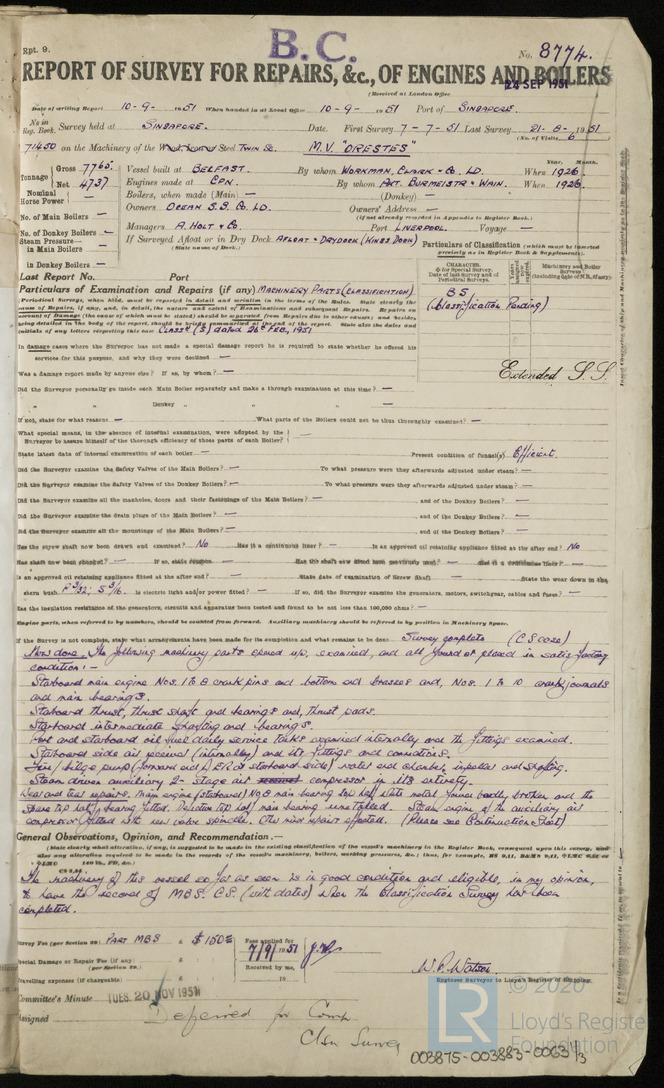 B.C.
Rpt. 9.
No. 8774.
REPORT OF SURVEY FOR REPAIRS, &c., OF ENGINES AND BOILERS
24 SEP 1951
(Received at London Office
Date of writing Report 10-9- 1951 When handed in at Local Office 10-9- 1951 Port of SINGAPORE.
No. in Reg. Book. Survey held at SINGAPORE. Date. First Survey 7-7-51 Last Survey 21-8- 1951
(No. of Visits 6
71450 on the Machinery of the Wood, Iron or Steel TWIN Sc. M.V. "ORESTES"
Tonnage Gross 7765. Net 4737
Vessel built at BELFAST. By whom WORKMAN, CLARK & Co. LD. When 1926
Engines made at CPN. By whom AKT. BURMEISTR & WAIN. When 1926
Year. Month.
Nominal Horse Power
Boilers, when made (Main) — (Donkey) —
No. of Main Boilers —
Owners OCEAN S.S. Co. LD. Owners' Address —
(if not already recorded in Appendix to Register Book.)
No. of Donkey Boilers —
Managers A. HOLT & Co. Port LIVERPOOL. Voyage —
Steam Pressure— in Main Boilers
If Surveyed Afloat or in Dry Dock AFLOAT & DRYDOCK (KINGS DOCK)
(State name of Dock.)
in Donkey Boilers —
Particulars of Classification (which must be inserted precisely as in Register Book & Supplements).
CHARACTER.
Machinery and Boiler Surveys
BS
(Classification Pending)
Extended S.S.
Last Report No. Port
Particulars of Examination and Repairs (if any) MACHINERY PARTS (CLASSIFICATION)
(Periodical Surveys, when held, must be reported in detail and seriatim in the terms of the Rules. State clearly the
cause of Repairs, if any, and, in detail, the nature and extent of Examinations and subsequent Repairs. Repairs on
account of Damage (the cause of which must be stated) should be separated from Repairs due to other causes; and besides,
being detailed in the body of the report, should be briefly summarised at the end of the report. State also the dates and
initials of any letters respecting this case CLASS (S) dated 26th FEB, 1951
In damage cases where the Surveyor has not made a special damage report he is required to state whether he offered his
services for this purpose, and why they were declined —
Was a damage report made by anyone else? If so, by whom? —
Did the Surveyor personally go inside each Main Boiler separately and make a thorough examination at this time? —
" " Donkey " " " —
If not, state for what reasons — What parts of the Boilers could not be thus thoroughly examined? —
What special means, in the absence of internal examination, were adopted by the
Surveyor to assure himself of the thorough efficiency of those parts of each Boiler? —
State latest date of internal examination of each boiler — Present condition of funnel(s) Efficient.
Did the Surveyor examine the Safety Valves of the Main Boilers? — To what pressure were they afterwards adjusted under steam? —
Did the Surveyor examine the Safety Valves of the Donkey Boilers? — To what pressure were they afterwards adjusted under steam? —
Did the Surveyor examine all the manholes, doors and their fastenings of the Main Boilers? — and of the Donkey Boilers? —
Did the Surveyor examine the drain plugs of the Main Boilers? — and of the Donkey Boilers? —
Did the Surveyor examine all the mountings of the Main Boilers? — and of the Donkey Boilers? —
Has the screw shaft now been drawn and examined? No Has it a continuous liner? — Is an approved oil retaining appliance fitted at the after end? No
Has shaft now been changed? — If so, state reasons — Has the shaft now fitted been previously used? — Has it a continuous liner? —
Is an approved oil retaining appliance fitted at the after end? — State date of examination of Screw Shaft — State the wear down in the
stern bush. P 3/32, S 3/16. Is electric light and/or power fitted? — If so, did the Surveyor examine the generators, motors, switchgear, cables and fuses? —
Has the insulation resistance of the generators, circuits and apparatus been tested and found to be not less than 100,000 ohms? —
Engine parts, when referred to by numbers, should be counted from forward. Auxiliary machinery should be referred to by position in Machinery Space.
If the Survey is not complete, state what arrangements have been made for its completion and what remains to be done Survey complete (CS case)
Now done. The following machinery parts opened up, examined, and all found or placed in satisfactory
condition:—
Starboard main engine Nos. 1 to 8 crank pins and bottom end brasses and, Nos. 1 to 10 crank journals
and main bearings.
Starboard thrust, thrust shaft and bearings and, thrust pads.
Starboard intermediate shafting and bearings.
Port and starboard oil fuel daily service tanks examined internally and the fittings examined.
Starboard side air receiver (internally) and its fittings and connections.
Fire/bilge pump (forward end of ER starboard side) water end chamber, impeller and shafting.
Steam driven auxiliary 2-stage air compressor in its entirety.
Wear and tear repairs. Main engine (starboard) No. 8 main bearing top half white metal found badly broken and the
spare top half bearing fitted. Defective top half main bearing remetalled. Steam engine of the auxiliary air
compressor fitted with new valve spindle. Other minor repairs effected. (Please see Continuation Sheet)
General Observations, Opinion, and Recommendation.—
(State clearly what alteration, if any, is suggested to be made in the existing classification of the vessel's machinery in the Register Book, consequent upon this survey, and
The machinery of this vessel so far as seen is in good condition and eligible, in my opinion,
to have the record of MBS. CS. (with dates) when the Classification Survey has been
completed.
Survey Fee (per Section 29) PART MBS $ 150
Special Damage or Repair Fee (if any) (per Section 29.)
Travelling expenses (if chargeable)
Fees applied for 7/9/1951
Received by me,
W. P. Watson
Engineer Surveyor to Lloyd's Register of Shipping.
Committee's Minute TUES. 20 NOV 1951
Assigned Deferred for Comp
Class Survey
© 2020
Lloyd's Register
Foundation
003875-003883-0063 1/3